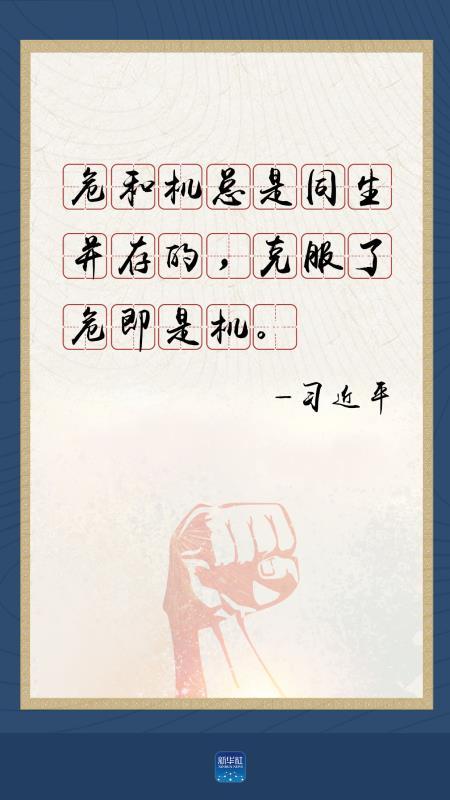 危和机总是同生
并存的，克服了
危即是机。
—习近平
新华社
XINHUA NEWS